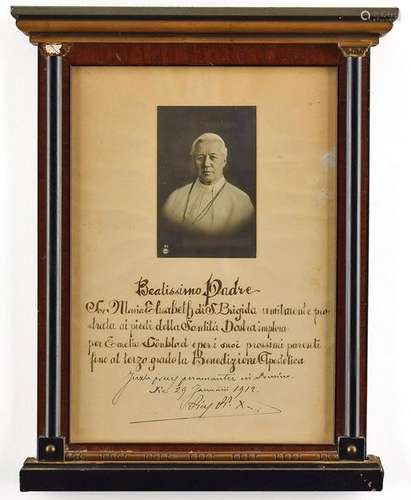 Beatissimo Padre
Sor Maria Elisabeth di S. Brigida umilmente pro=
strata ai piedi della Santità Vostra implora
per Emelie Lönblad e per i suoi prossimi parenti
fino al terzo grado la Benedizione Apostolica
Juxta preces peramanter in Domino.
Die 29 Januarii 1912
Pius Pp. X